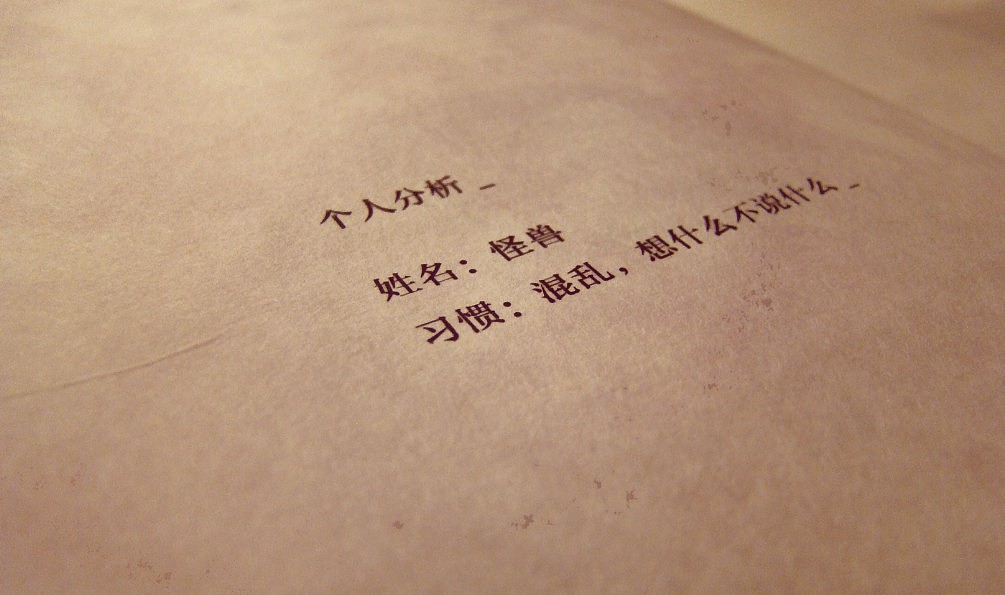 个人分析 _
姓名：怪兽
习惯：混乱，想什么不说什么 _